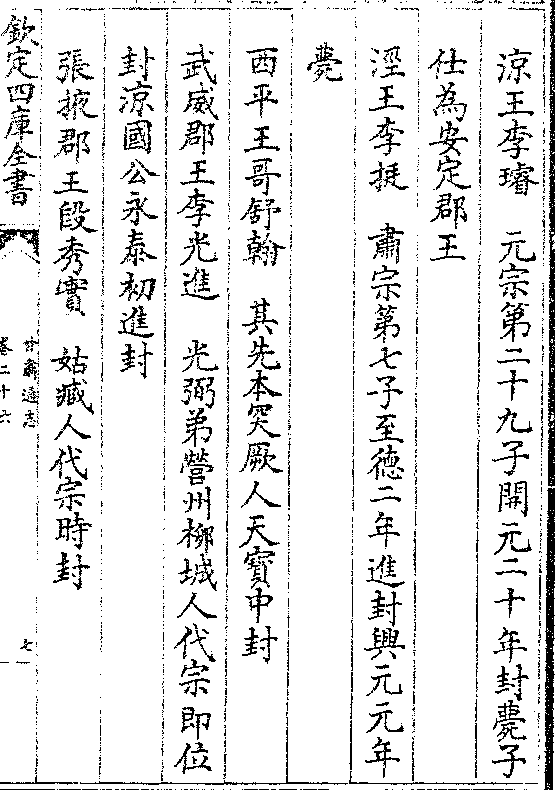 涼王李璿　元宗第二十九子開元二十年封薨子
仕為安定郡王
涇王李挺　肅宗第七子至德二年進封興元元年
薨
西平王哥舒翰　其先本突厥人天寶中封
武威郡王李光進　光弼弟營州柳城人代宗即位
封涼國公永泰初進封
張掖郡王段秀實　姑臧人代宗時封
欽定四庫全書
甘肅通志
卷二十六
七